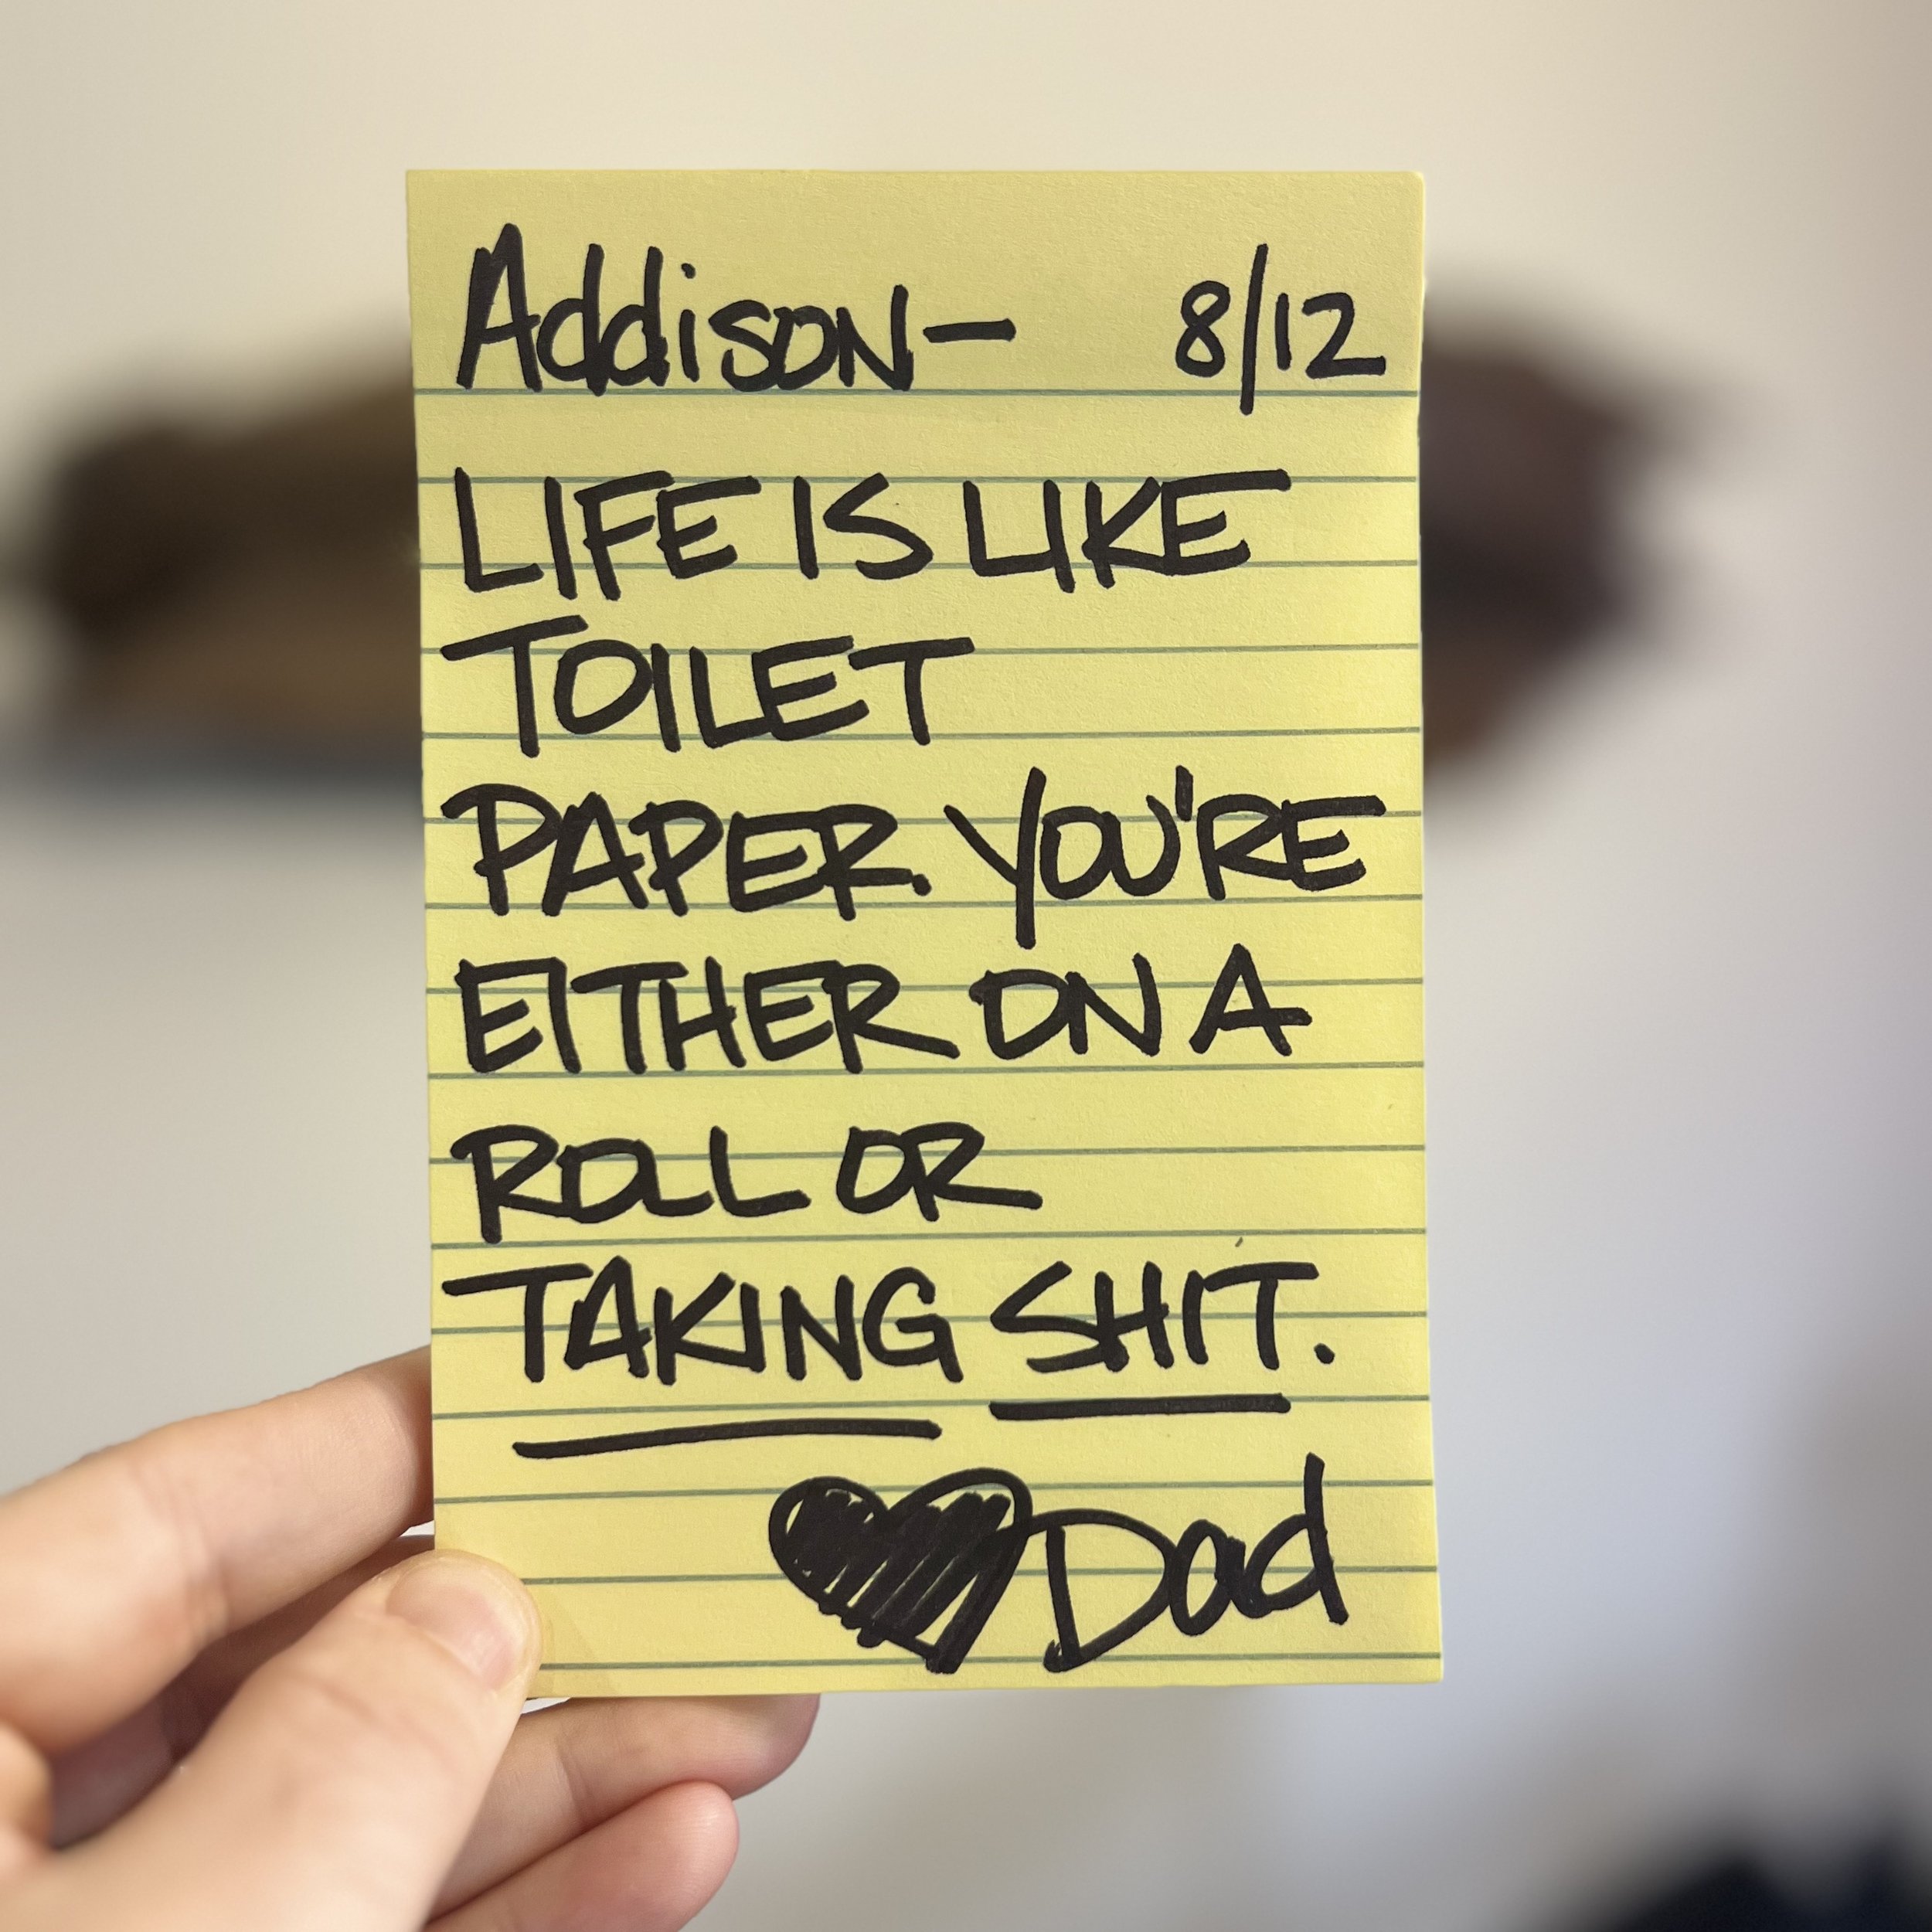 Addison- 8/12
LIFE IS LIKE
TOILET
PAPER. YOU'RE
EITHER ON A
ROLL OR
TAKING SHIT.
♥Dad